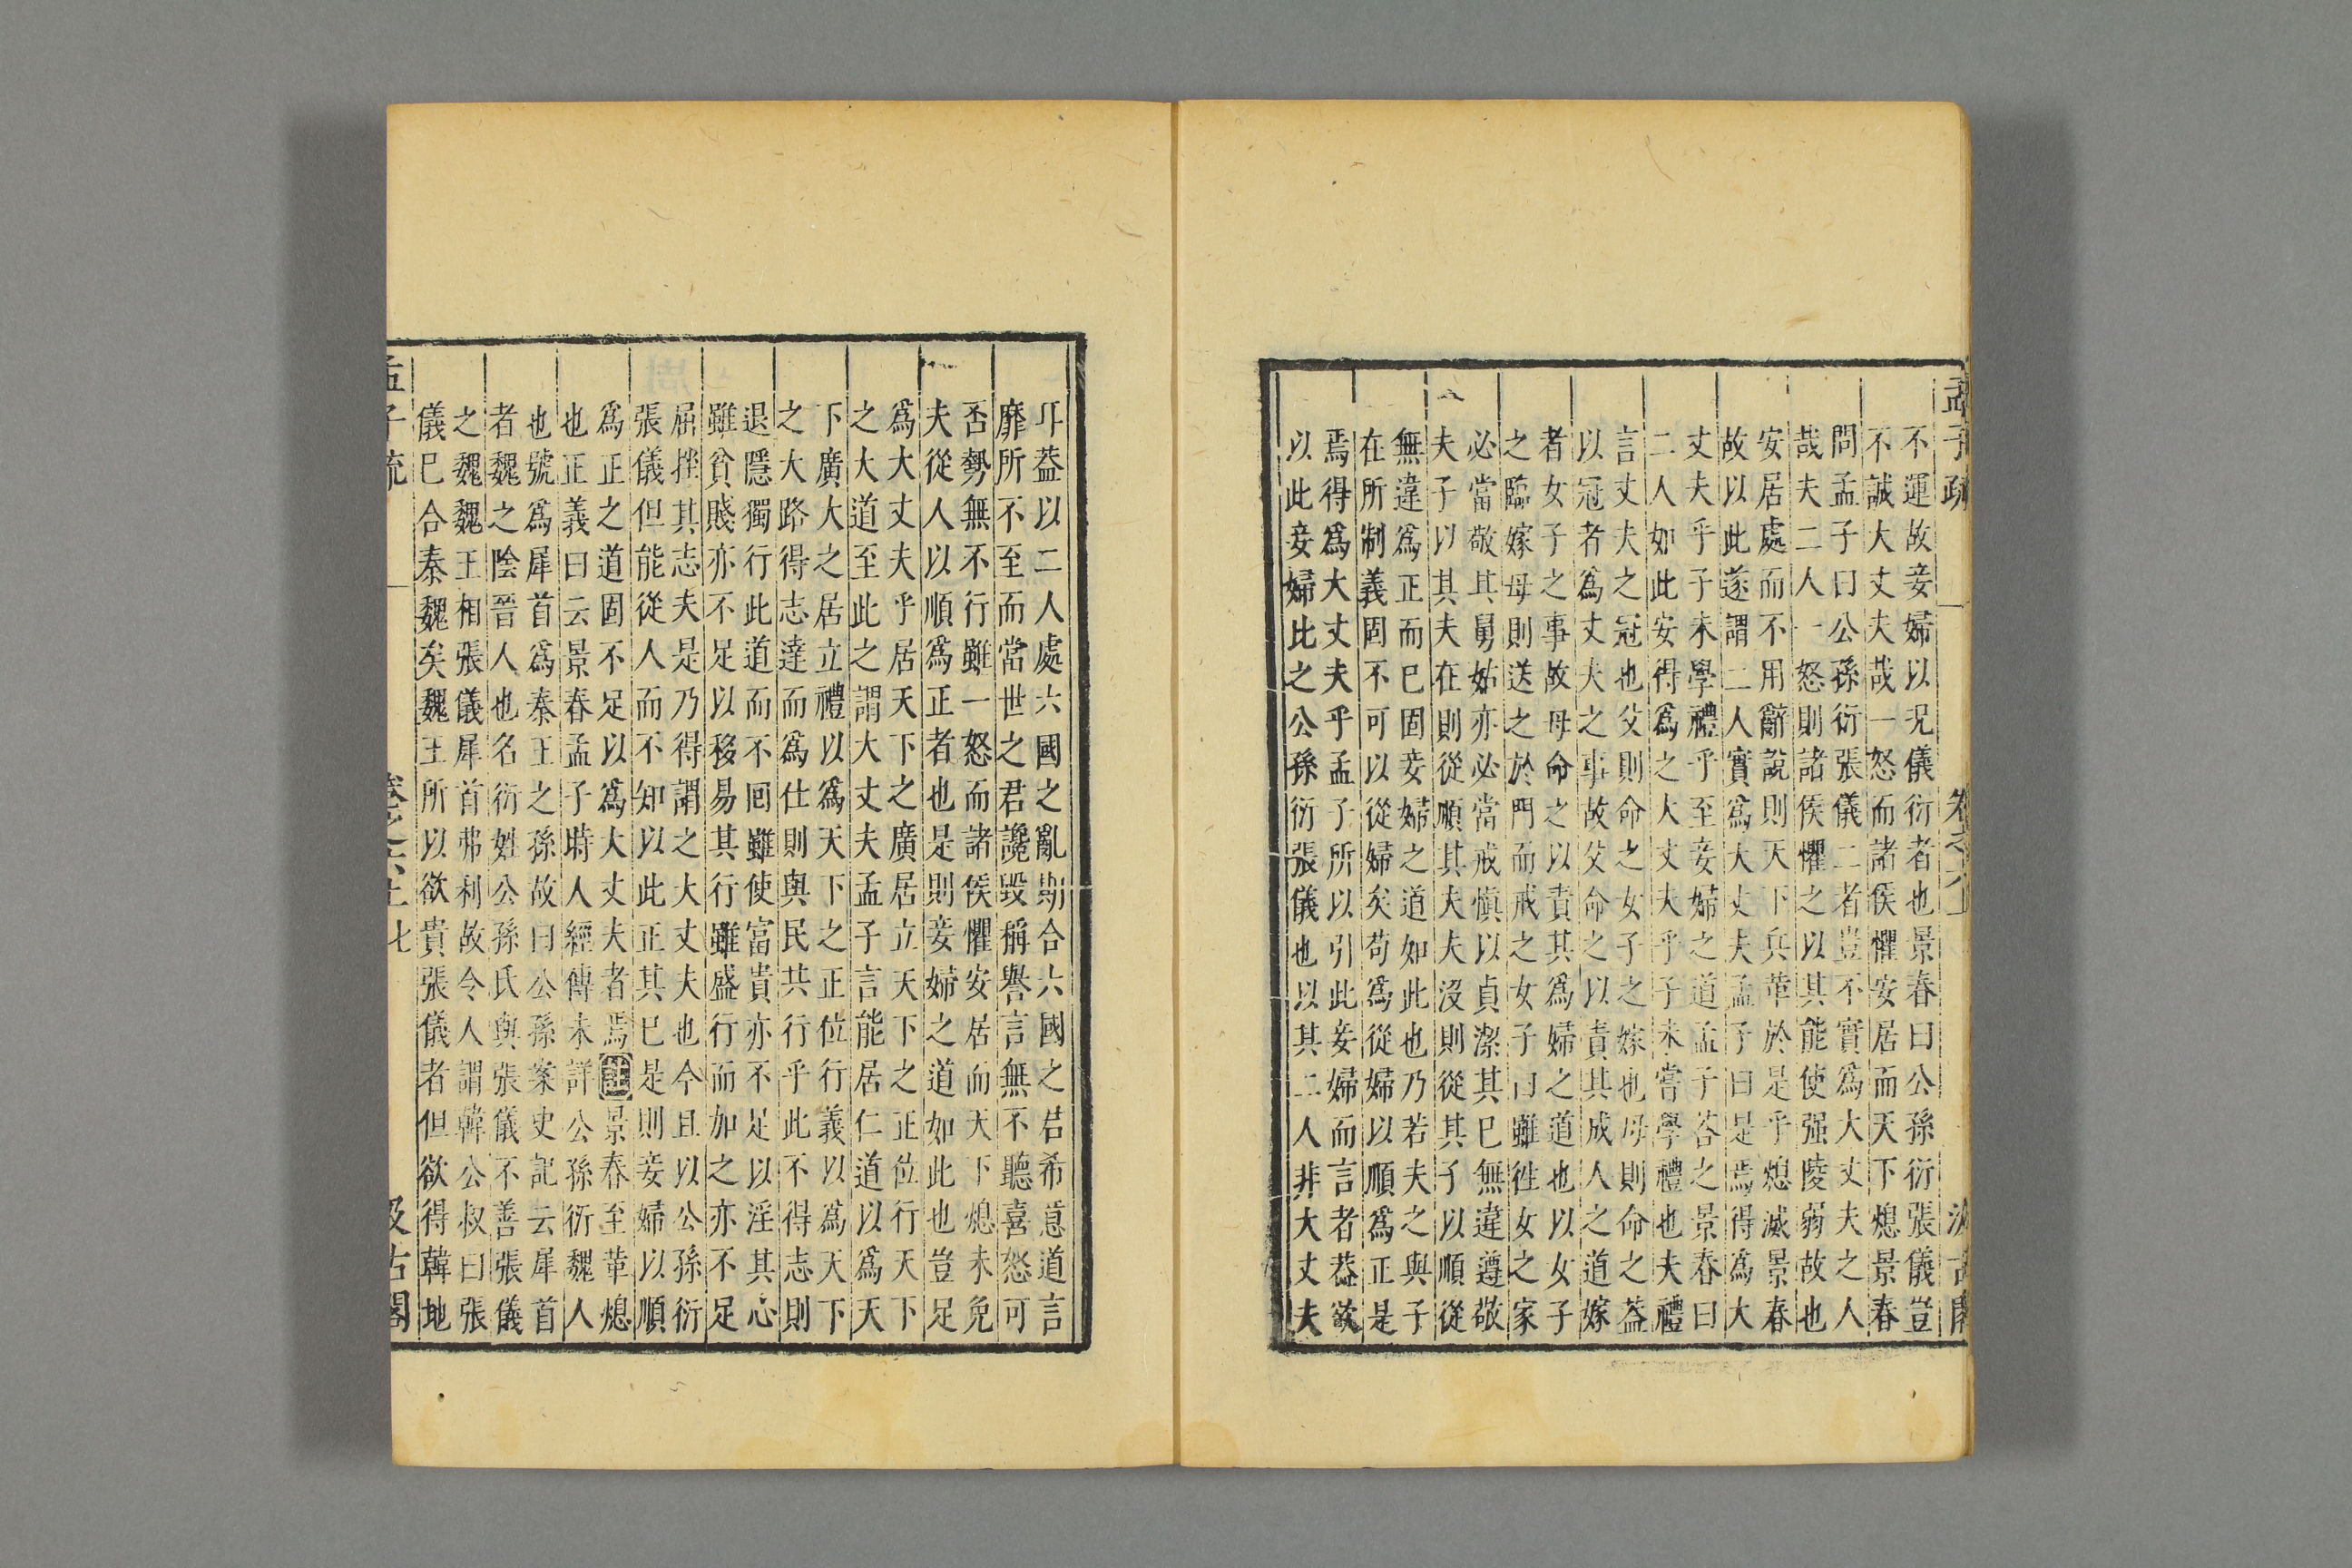 孟子疏 卷六上 汲古閣
不運故妾婦以況儀衍者也景春曰公孫衍張儀豈
不誠大丈夫哉一怒而諸侯懼安居而天下熄景春
問孟子曰公孫衍張儀二者豈不實爲大丈夫之人
哉夫二人一怒則諸侯懼之以其能使强陵弱故也
安居處而不用辭說則天下兵革於是乎熄滅景春
故以此遂謂二人實爲大丈夫孟子曰是焉得爲大
丈夫乎子未學禮乎至妾婦之道孟子荅之景春曰
二人如此安得爲之大丈夫乎子未嘗學禮也夫禮
言丈夫之冠也父則命之女子之嫁也母則命之葢
以冠者爲丈夫之事故父命之以責其成人之道嫁
者女子之事故母命之以責其爲婦之道也以女子
之臨嫁母則送之於門而戒之女子曰雖徃女之家
必當敬其舅姑亦必當戒愼以貞潔其已無違遵敬
夫子以其夫在則從順其夫夫沒則從其子以順從
無違爲正而已固妾婦之道如此也乃若夫之與子
在所制義固不可以從婦矣苟爲從婦以順爲正是
焉得爲大丈夫乎孟子所以引此妾婦而言者葢欲
以此妾婦比之公孫衍張儀也以其二人非大丈夫
斗葢以二人處六國之亂期合六國之君希意道言
靡所不至而當世之君讒毀稱譽言無不聽喜怒可
否勢無不行雖一怒而諸侯懼安居而天下熄未免
夫從人以順爲正者也是則妾婦之道如此也豈足
爲大丈夫乎居天下之廣居立天下之正位行天下
之大道至此之謂大丈夫孟子言能居仁道以爲天
下廣大之居立禮以爲天下之正位行義以爲天下
之大路得志達而爲仕則與民共行乎此不得志則
退隱獨行此道而不囘雖使富貴亦不足以淫其心
雖貧賤亦不足以移易其行雖盛行而加之亦不足
屈挫其志夫是乃得謂之大丈夫也今且以公孫衍
張儀但能從人而不知以此正其已是則妾婦以順
爲正之道固不足以爲大丈夫者焉註景春至華熄
也正義曰云景春孟子時人經傳未詳公孫衍魏人
也號爲犀首爲秦王之孫故曰公孫案史記云犀首
者魏之陰晉人也名衍姓公孫氏與張儀不善張儀
之魏魏王相張儀犀首弗利故令人謂韓公叔曰張
儀巳合秦魏矣魏王所以欲貴張儀者但欲得韓地
孟子疏 卷之六上 七 汲古閣